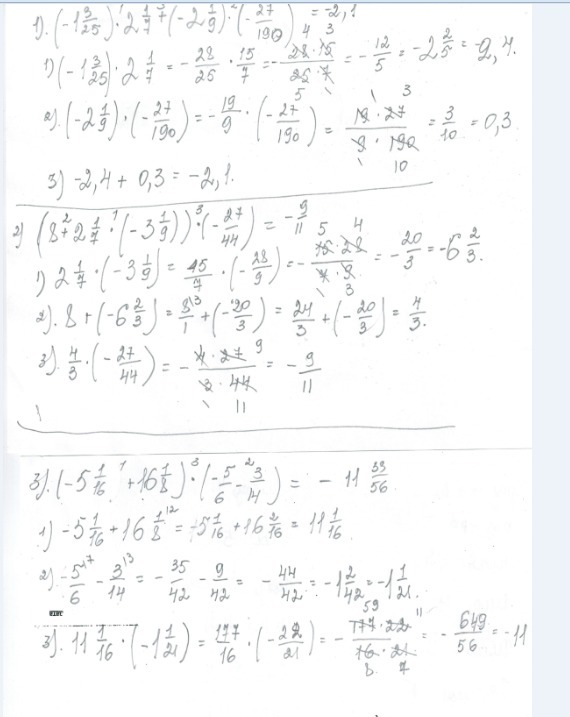 1). (-1 3/25) · 2 1/7 + (-2 1/9) · (-27/190) = -2,1
1) (-1 3/25) · 2 1/7 = -28/25 · 15/7 = -28·15/25·7 = -12/5 = -2 2/5 = -2,4.
2). (-2 1/9) · (-27/190) = -19/9 · (-27/190) = 19·27/9·190 = 3/10 = 0,3
3) -2,4 + 0,3 = -2,1.
2) (8 + 2 1/7 · (-3 1/9)) · (-27/44) = -9/11
1) 2 1/7 · (-3 1/9) = 15/7 · (-28/9) = -15·28/7·9 = -20/3 = -6 2/3.
2). 8 + (-6 2/3) = 8/1 + (-20/3) = 24/3 + (-20/3) = 4/3.
3). 4/3 · (-27/44) = -4·27/3·44 = -9/11
3). (-5 1/16 + 16 1/8) · (-5/6 - 3/14) = -11 33/56
1) -5 1/16 + 16 1/8 = -5 1/16 + 16 2/16 = 11 1/16
2) -5/6 - 3/14 = -35/42 - 9/42 = -44/42 = -1 2/42 = -1 1/21.
3). 11 1/16 · (-1 1/21) = 177/16 · (-22/21) = -177·22/16·21 = -649/56 = -11